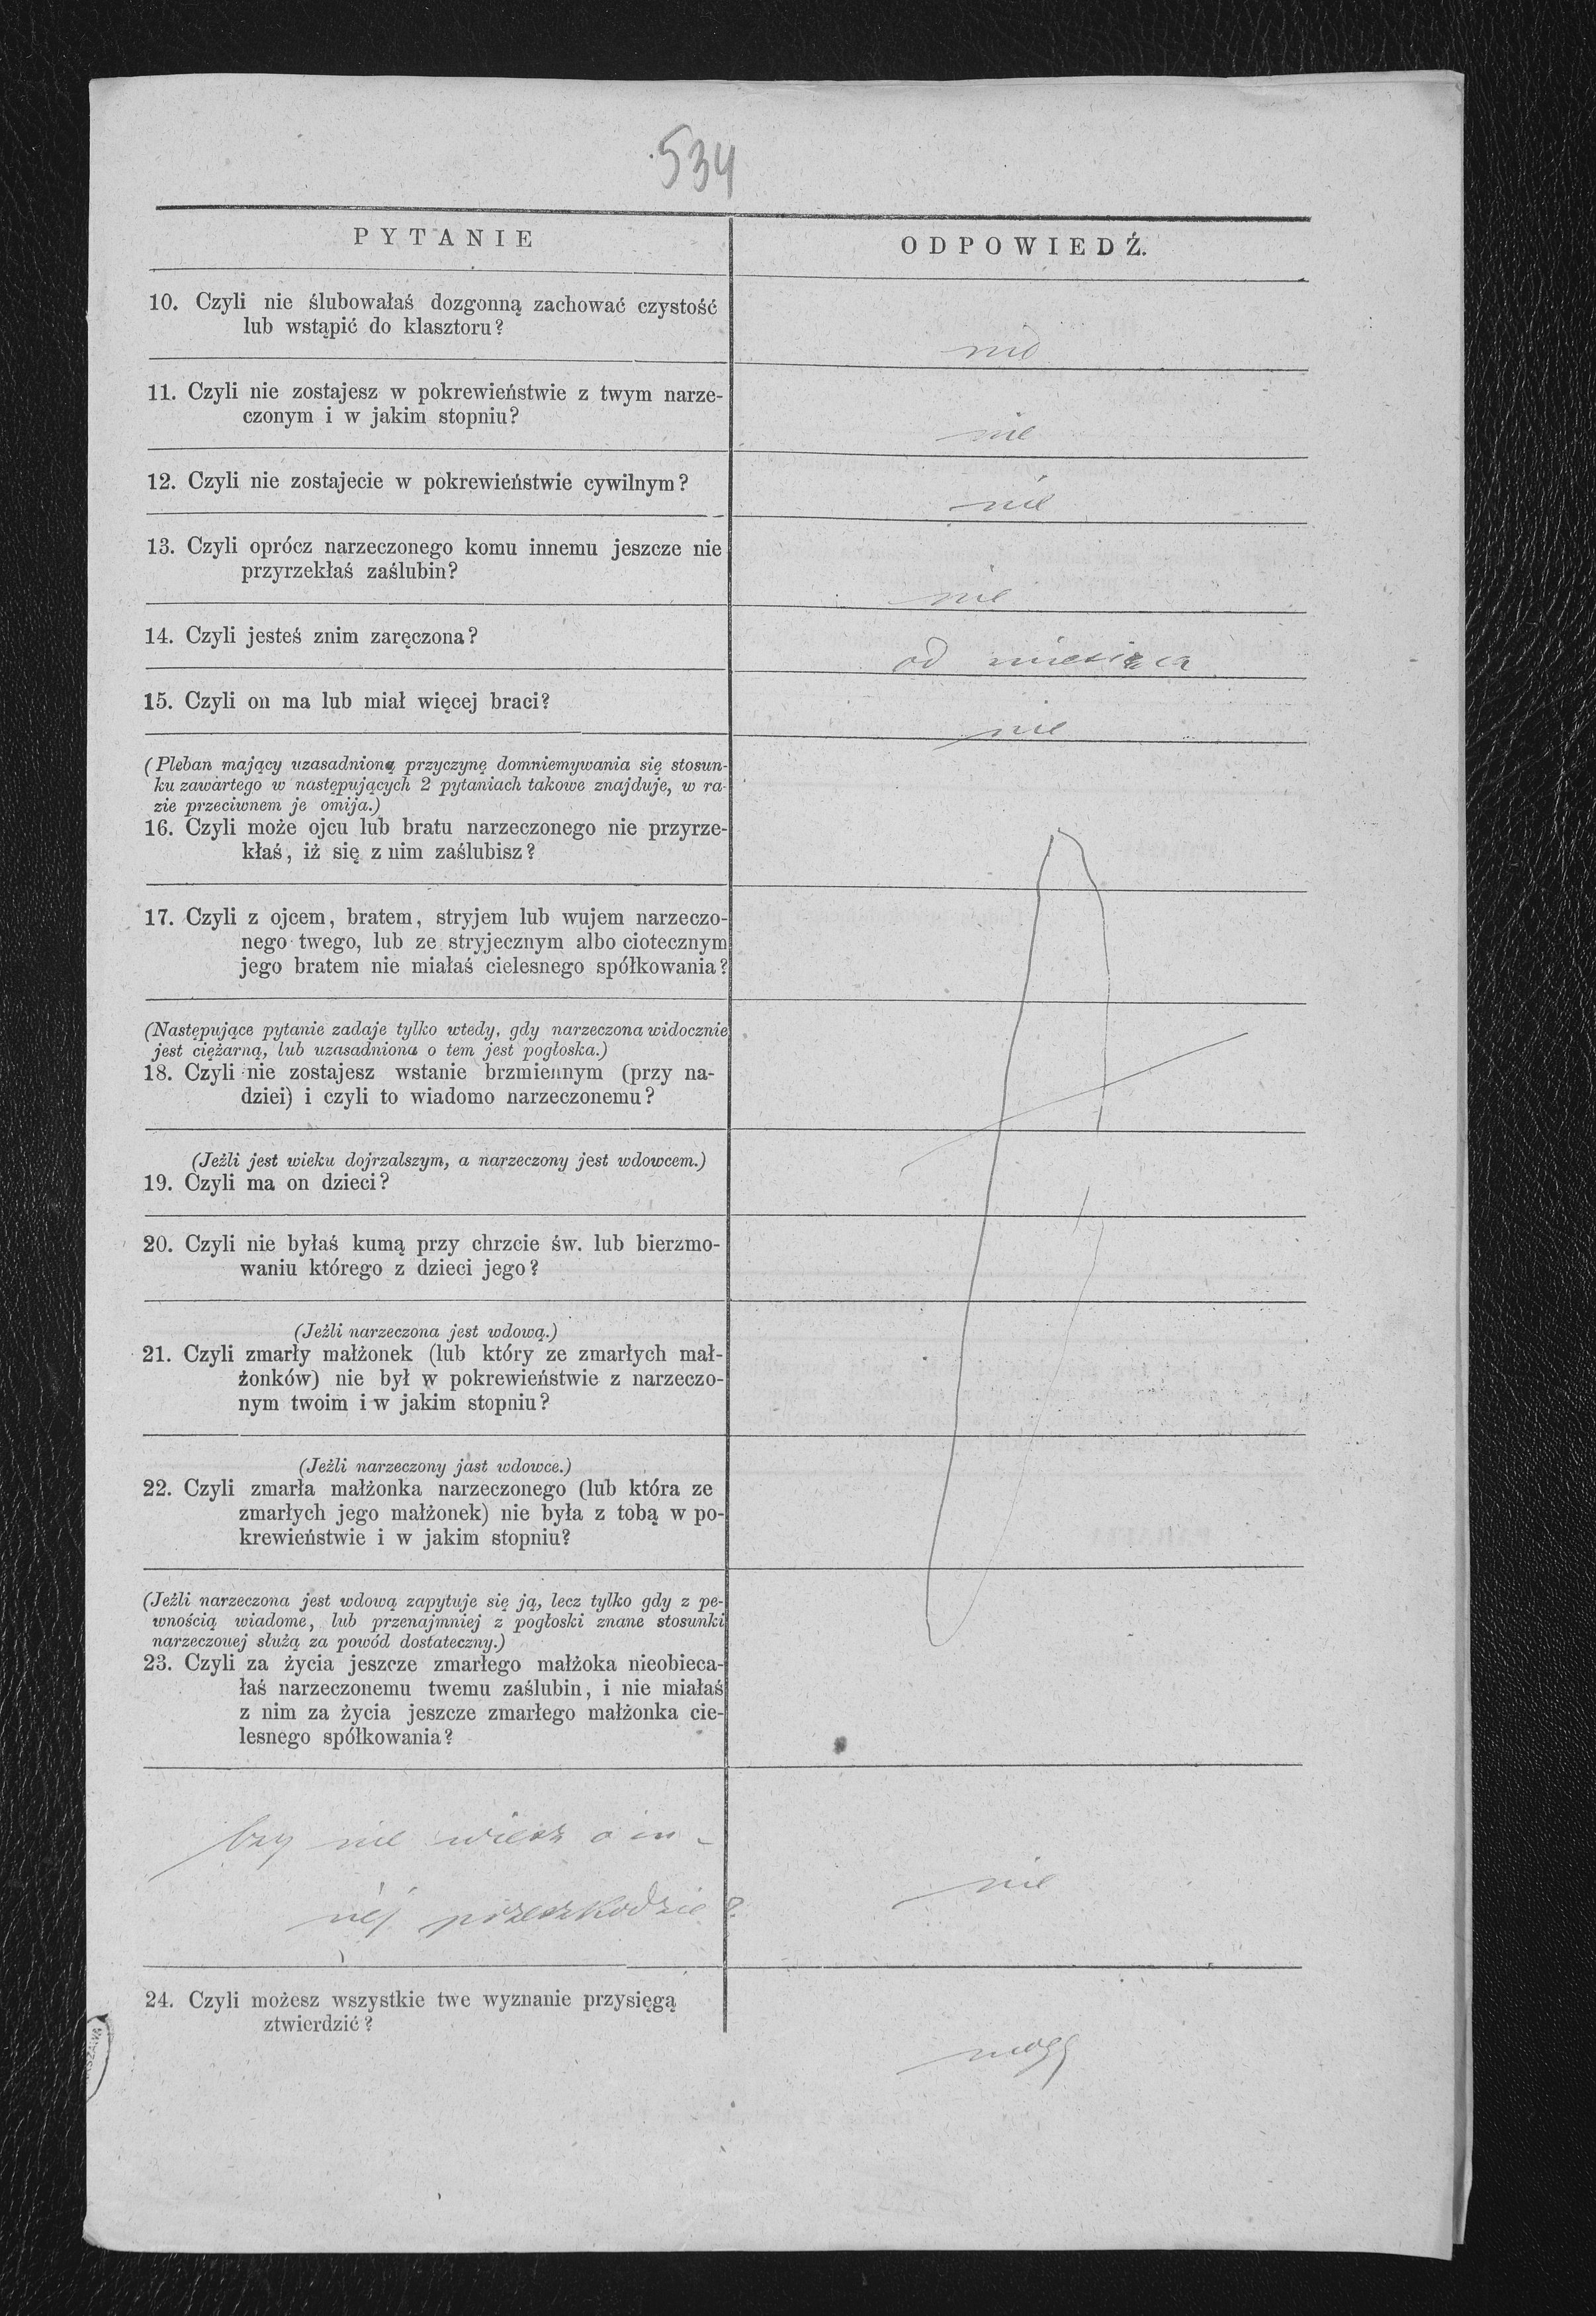 534
PYTANIE
ODPOWIEDŹ.
10. Czyli nie ślubowałaś dozgonną zachować czystość
lub wstąpić do klasztoru?
nie
11. Czyli nie zostajesz w pokrewieństwie z twym narze-
czonym i w jakim stopniu?
nie
12. Czyli nie zostajecie w pokrewieństwie cywilnym?
nie
13. Czyli oprócz narzeczonego komu innemu jeszcze nie
przyrzekłaś zaślubin?
nie
14. Czyli jesteś znim zaręczona?
od miesiąca
15. Czyli on ma lub miał więcej braci?
nie
(Pleban mający uzasadnioną przyczynę domniemywania się stosun-
ku zawartego w następujących 2 pytaniach takowe znajduje, w ra-
zie przeciwnem je omija.)
16. Czyli może ojcu lub bratu narzeczonego nie przyrze-
kłaś, iż się z nim zaślubisz?
17. Czyli z ojcem, bratem, stryjem lub wujem narzeczo-
nego twego, lub ze stryjecznym albo ciotecznym
jego bratem nie miałaś cielesnego spółkowania?
(Następujące pytanie zadaje tylko wtedy, gdy narzeczona widocznie
jest ciężarną, lub uzasadniona o tem jest pogłoska.)
18. Czyli nie zostajesz wstanie brzmiennym (przy na-
dziei) i czyli to wiadomo narzeczonemu?
(Jeżli jest wieku dojrzalszym, a narzeczony jest wdowcem.)
19. Czyli ma on dzieci?
20. Czyli nie byłaś kumą przy chrzcie św. lub bierzmo-
waniu którego z dzieci jego?
(Jeżli narzeczona jest wdową.)
21. Czyli zmarły małżonek (lub który ze zmarłych mał-
żonków) nie był w pokrewieństwie z narzeczo-
nym twoim i w jakim stopniu?
(Jeżli narzeczony jast wdowce.)
22. Czyli zmarła małżonka narzeczonego (lub która ze
zmarłych jego małżonek) nie była z tobą w po-
krewieństwie i w jakim stopniu?
(Jeżli narzeczona jest wdową zapytuje się ją, lecz tylko gdy z pe-
wnością wiadome, lub przenajmniej z pogłoski znane stosunki
narzeczouej służą za powód dostateczny.)
23. Czyli za życia jeszcze zmarłego małżoka nieobieca-
łaś narzeczonemu twemu zaślubin, i nie miałaś
z nim za życia jeszcze zmarłego małżonka cie-
lesnego spółkowania?
Czy nie wiesz o in-
néj przeszkodzie?
nie
24. Czyli możesz wszystkie twe wyznanie przysięgą
ztwierdzić?
mogę